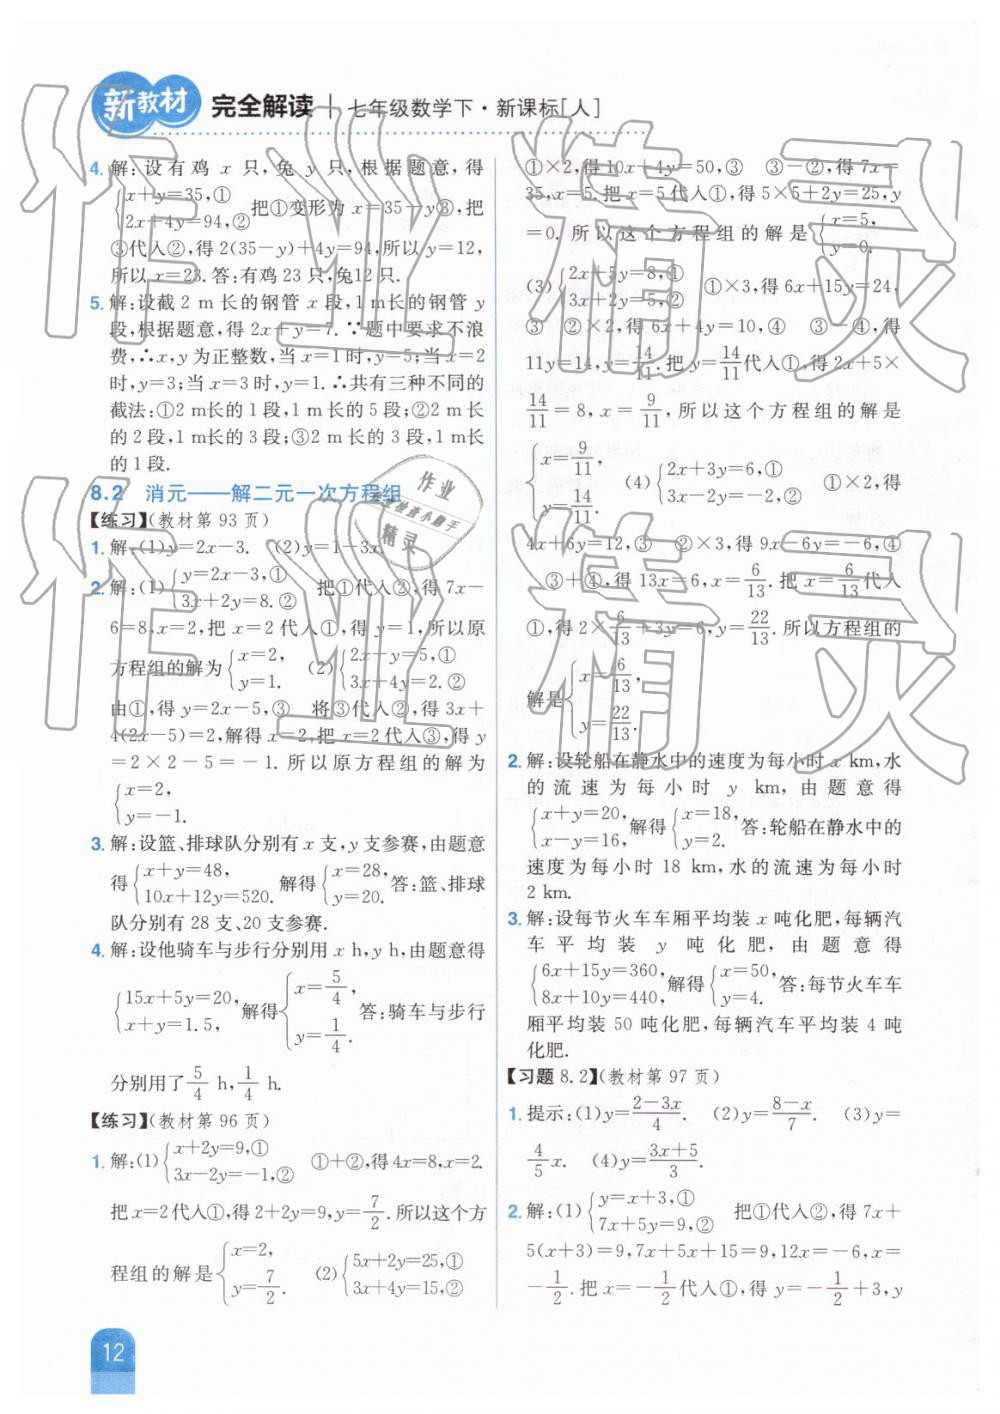 新教材 完全解读 七年级数学下·新课标[人]
4. 解:设有鸡 x 只,兔 y 只,根据题意,得
{x+y=35,①
2x+4y=94,② 把①变形为 x=35-y③,把
③代入②,得 2(35-y)+4y=94,所以 y=12,
所以 x=23. 答:有鸡 23 只,兔12 只.
5. 解:设截 2 m长的钢管 x 段,1 m长的钢管 y
段,根据题意,得 2x+y=7. ∵题中要求不浪
费,∴x,y 为正整数,当 x=1时,y=5;当 x=2
时,y=3;当 x=3 时,y=1. ∴共有三种不同的
截法:①2 m长的 1 段,1 m长的 5 段;②2 m长
的 2 段,1 m长的 3 段;③2 m长的 3 段,1 m长
的 1 段.
8.2 消元——解二元一次方程组
【练习】(教材第 93 页)
1. 解:(1)y=2x-3. (2)y=1-3x.
2. 解:(1){y=2x-3,①
3x+2y=8.② 把①代入②,得 7x-
6=8,x=2,把 x=2 代入①,得 y=1,所以原
方程组的解为{x=2,
y=1. (2){2x-y=5,①
3x+4y=2.②
由①,得 y=2x-5,③ 将③代入②,得 3x+
4(2x-5)=2,解得 x=2,把 x=2 代入③,得 y
=2×2-5=-1. 所以原方程组的解为
{x=2,
y=-1.
3. 解:设篮、排球队分别有 x 支,y 支参赛,由题意
得{x+y=48,
10x+12y=520. 解得{x=28,
y=20. 答:篮、排球
队分别有 28 支、20 支参赛.
4. 解:设他骑车与步行分别用 x h,y h,由题意得
{15x+5y=20,
x+y=1.5, 解得{x=5/4,
y=1/4. 答:骑车与步行
分别用了 5/4 h,1/4 h.
【练习】(教材第 96 页)
1. 解:(1){x+2y=9,①
3x-2y=-1,② ①+②,得 4x=8,x=2.
把 x=2代入①,得 2+2y=9,y=7/2. 所以这个方
程组的解是{x=2,
y=7/2. (2){5x+2y=25,①
3x+4y=15,②
①×2,得 10x+4y=50,③ ③-②,得 7x=
35,x=5. 把 x=5代入①,得 5×5+2y=25,y
=0. 所以这个方程组的解是{x=5,
y=0.
(3){2x+5y=8,①
3x+2y=5,② ①×3,得 6x+15y=24,
③ ②×2,得 6x+4y=10,④ ③-④,得
11y=14,y=14/11. 把 y=14/11代入①,得 2x+5×
14/11=8,x=9/11,所以这个方程组的解是
{x=9/11,
y=14/11. (4){2x+3y=6,①
3x-2y=-2,② ①×2,得
4x+6y=12,③ ②×3,得 9x-6y=-6,④
③+④,得 13x=6,x=6/13. 把 x=6/13代入
①,得 2×6/13+3y=6,y=22/13. 所以方程组的
解是{x=6/13,
y=22/13.
2. 解:设轮船在静水中的速度为每小时 x km,水
的流速为每小时 y km,由题意得
{x+y=20,
x-y=16, 解得{x=18,
y=2. 答:轮船在静水中的
速度为每小时 18 km,水的流速为每小时
2 km.
3. 解:设每节火车车厢平均装 x 吨化肥,每辆汽
车平均装 y 吨化肥,由题意得
{6x+15y=360,
8x+10y=440, 解得{x=50,
y=4. 答:每节火车车
厢平均装 50 吨化肥,每辆汽车平均装 4 吨
化肥.
【习题 8.2】(教材第 97 页)
1. 提示:(1)y=(2-3x)/4. (2)y=(8-x)/7. (3)y=
4/5 x. (4)y=(3x+5)/3.
2. 解:(1){y=x+3,①
7x+5y=9,② 把①代入②,得 7x+
5(x+3)=9,7x+5x+15=9,12x=-6,x=
-1/2. 把 x=-1/2代入①,得 y=-1/2+3,y
12
作业精灵
作业精灵